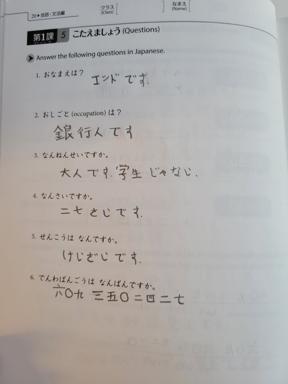 24▶会話・文法編
クラス
(Class)
なまえ
(Name)
第1課 5 こたえましょう (Questions)
Answer the following questions in Japanese.
1. おなまえは？
エンドです.
2. おしごと (occupation) は？
銀行人です
3. なんねんせいですか。
大人です.学生じゃなし.
4. なんさいですか。
二七さじです.
5. せんこうは なんですか。
けじざじです.
6. でんわばんごうは なんばんですか。
六〇九 三五〇 二四二七